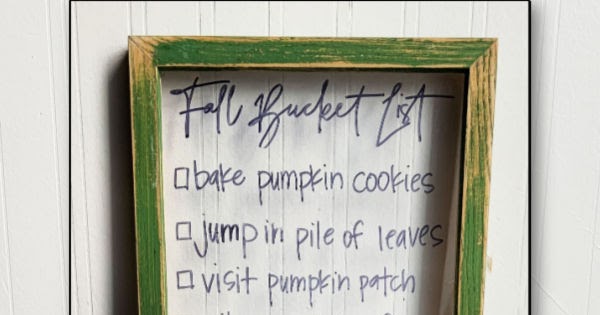 Fall Bucket List
□ bake pumpkin cookies
□ jump in pile of leaves
□ visit pumpkin patch